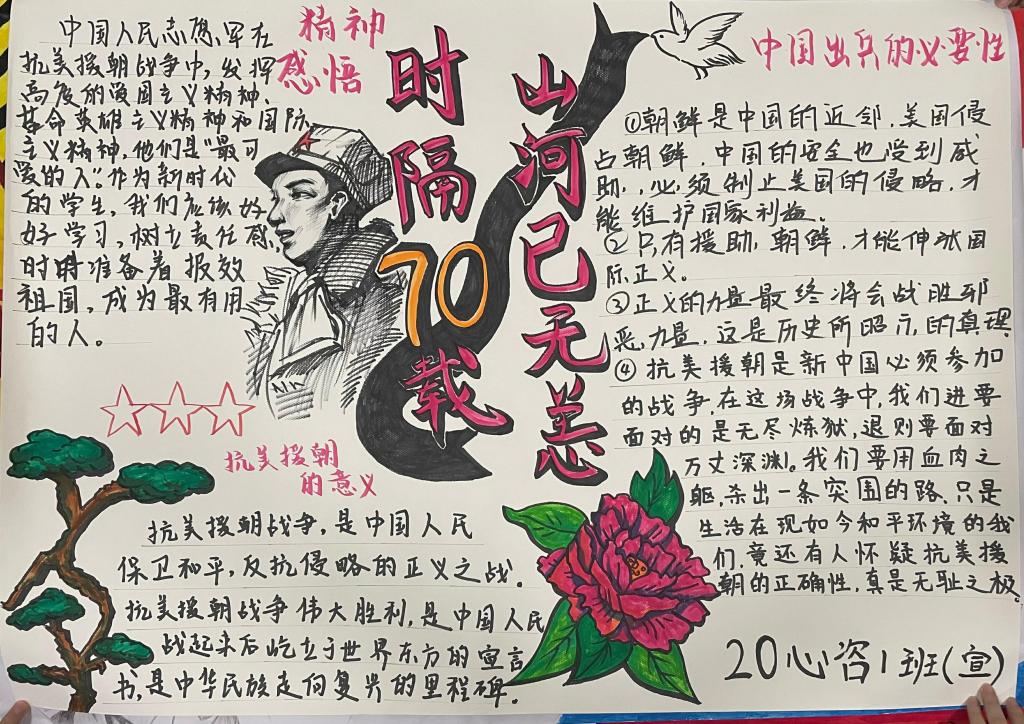 精神
感悟
中国人民志愿军在
抗美援朝战争中，发挥
高度的爱国主义精神、
革命英雄主义精神和国际
主义精神，他们是“最可
爱的人”。作为新时代
的学生，我们应该好
好学习，树立责任感，
时时准备着报效
祖国，成为最有用
的人。
时隔70载
山河已无恙
中国出兵的必要性
①朝鲜是中国的近邻，美国侵
占朝鲜，中国的安全也受到威
胁，必须制止美国的侵略，才
能维护国家利益。
②只有援助朝鲜，才能伸张国
际正义。
③正义的力量最终将会战胜邪
恶力量，这是历史所昭示的真理
④抗美援朝是新中国必须参加
的战争，在这场战争中，我们进要
面对的是无尽炼狱，退则要面对
万丈深渊。我们要用血肉之
躯，杀出一条突围的路，只是
生活在现如今和平环境的我
们，竟还有人怀疑抗美援
朝的正确性，真是无耻之极。
抗美援朝
的意义
抗美援朝战争，是中国人民
保卫和平，反抗侵略的正义之战。
抗美援朝战争伟大胜利，是中国人民
战起来后屹立于世界东方的宣言
书，是中华民族走向复兴的里程碑。
20心咨1班(宣)